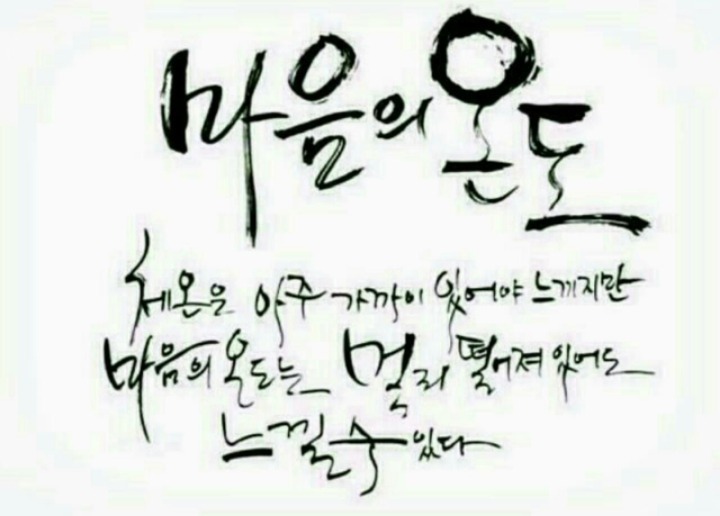 마음의 온도
체온은 아주 가까이 있어야 느끼지만
마음의 온도는 멀리 떨어져 있어도
느낄 수 있다